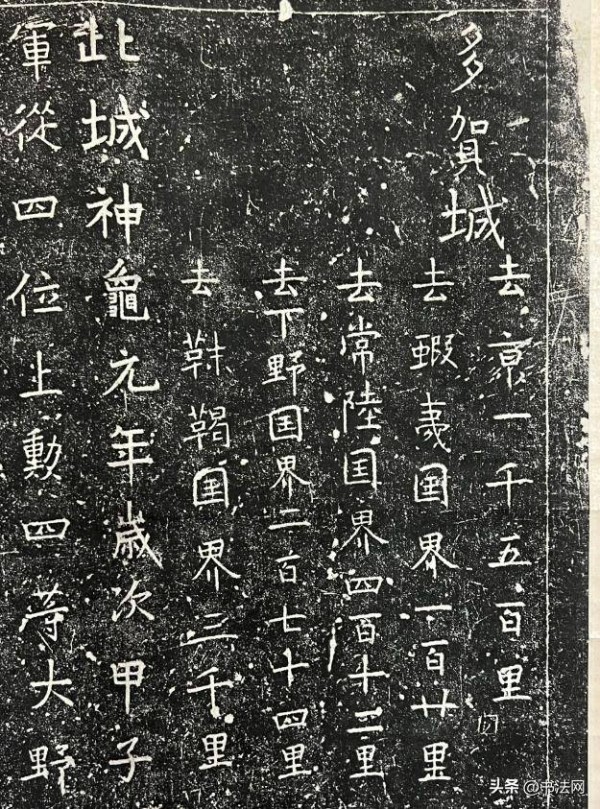 多賀城
去京一千五百里
去蝦夷国界一百廿里
去常陸国界四百十二里
去下野国界二百七十四里
去靺鞨国界三千里
此城神龜元年歲次甲子
軍從四位上勳四等大野
头条 @书法网